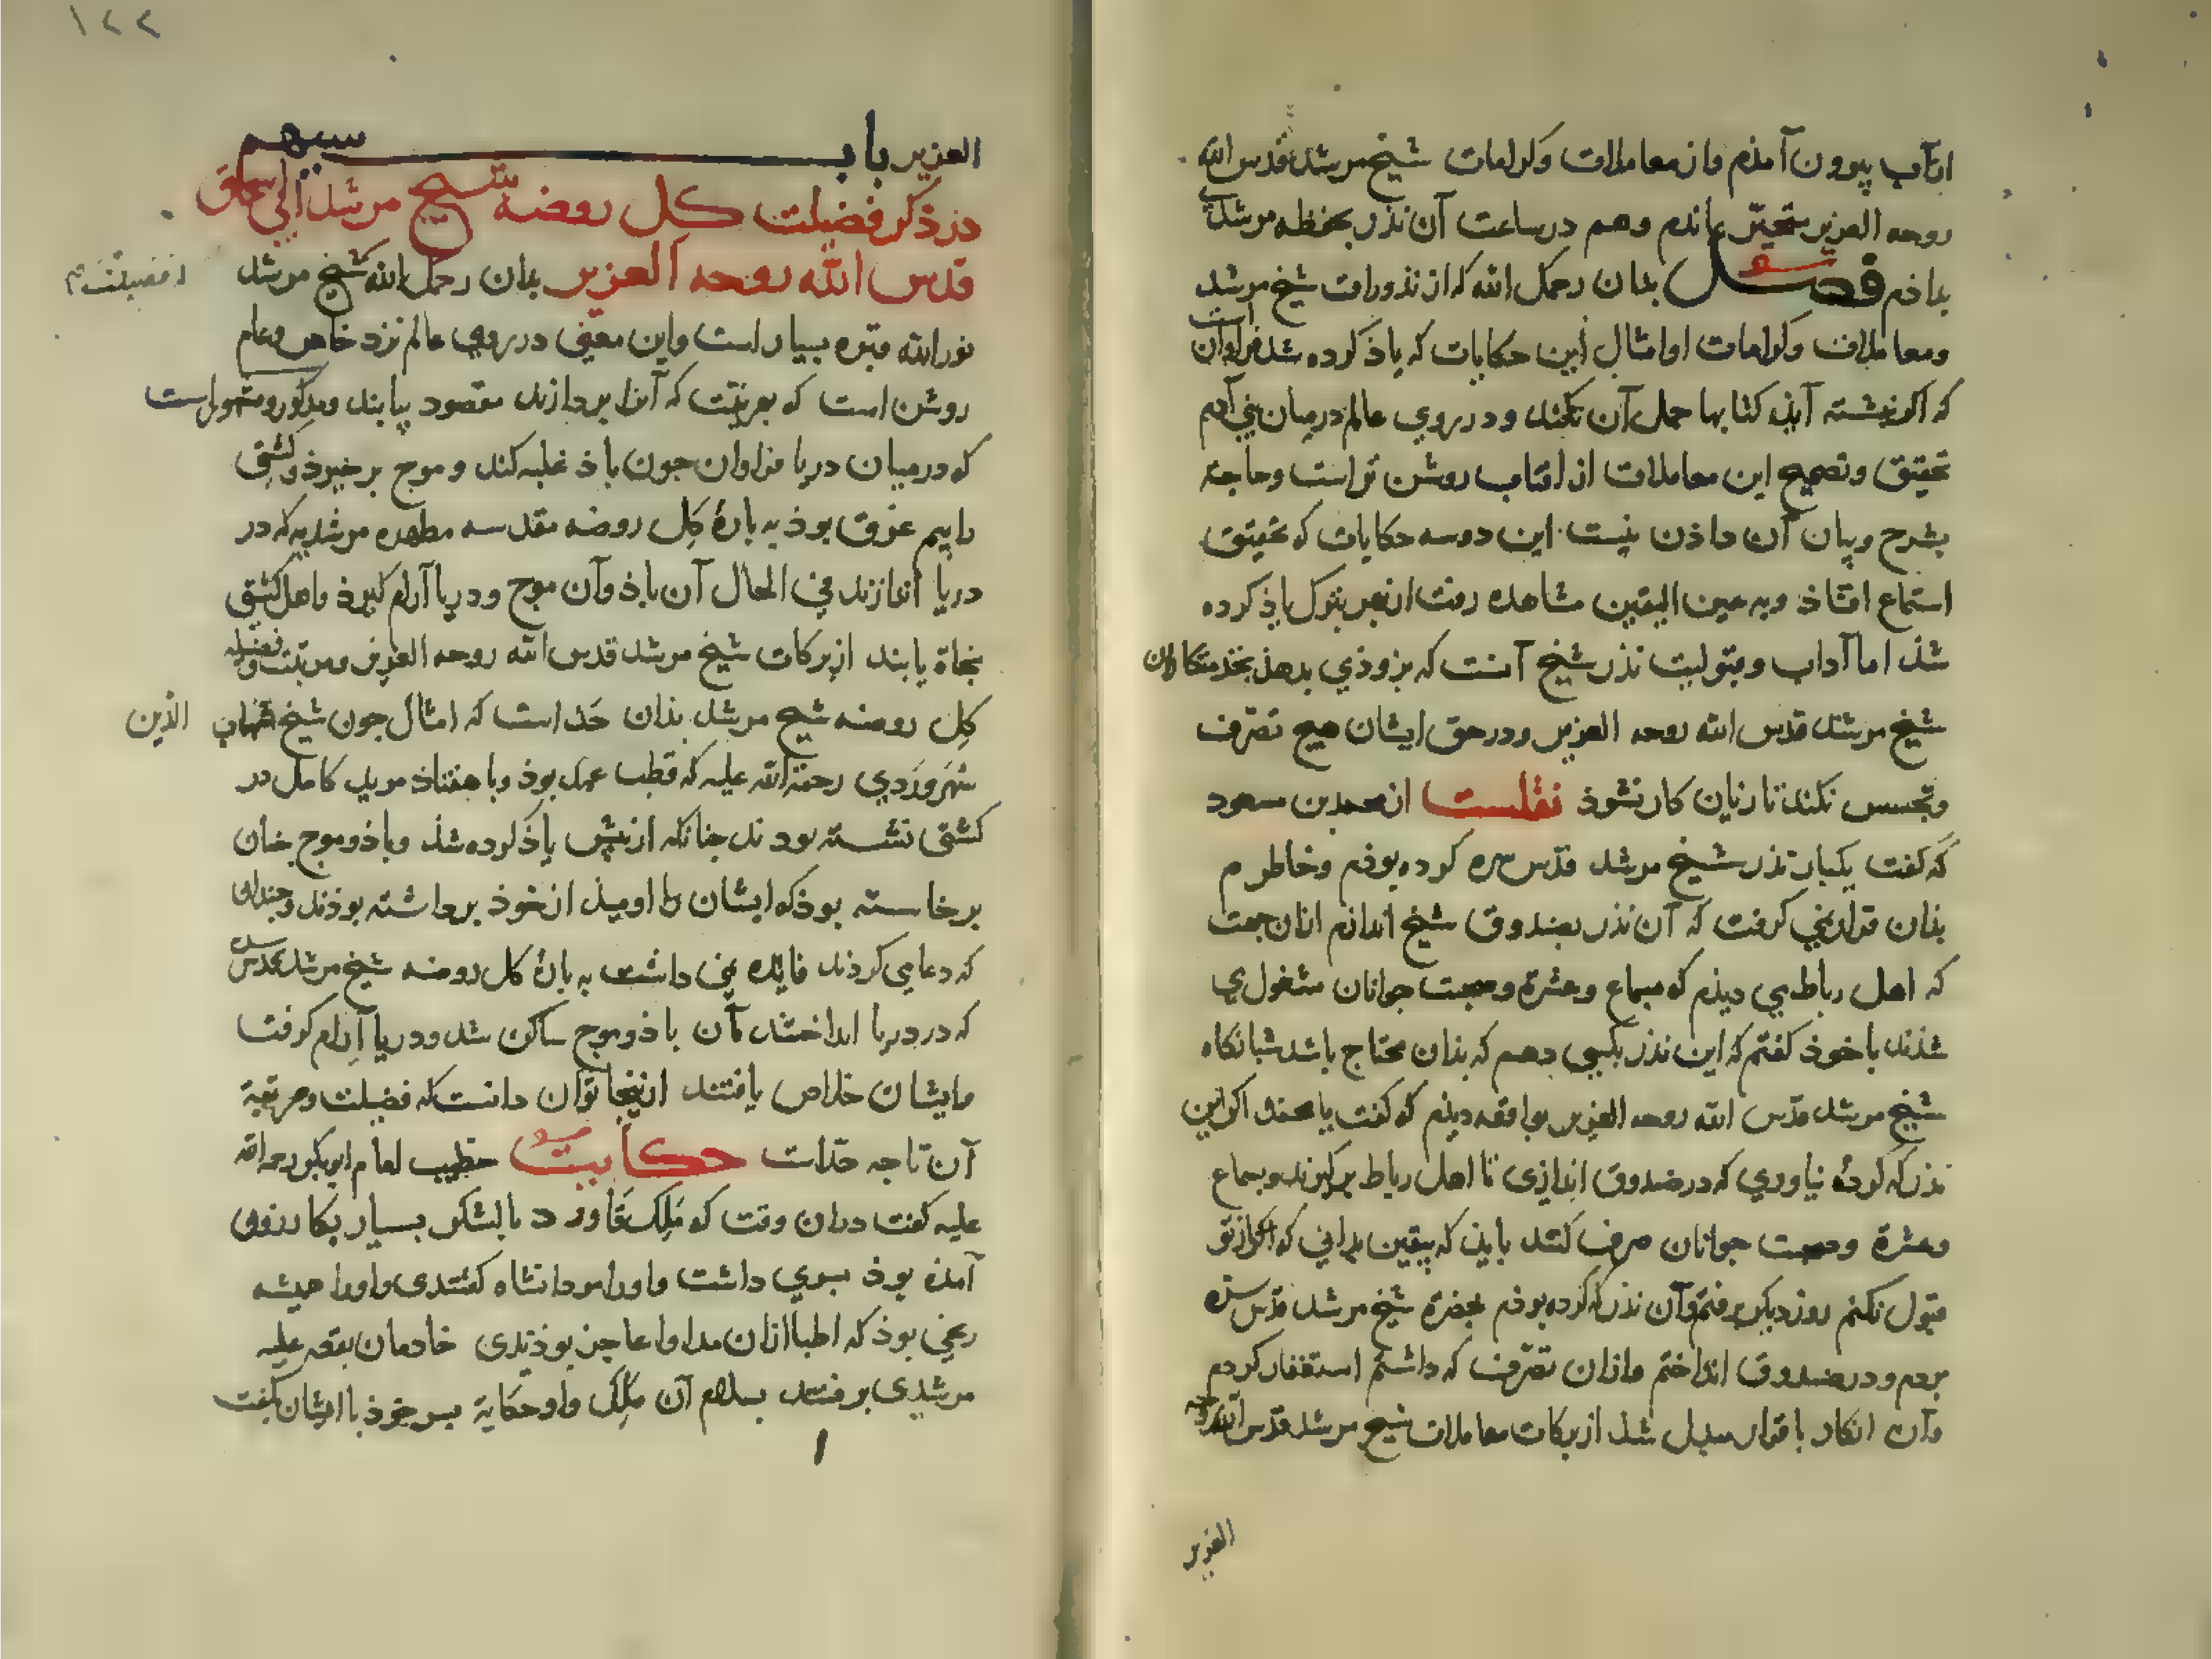 از آب بیرون آمذم واز معاملات وکرامات شیخ مرشد قدس الله
روحه العزیز متحیّر بماندم وهم در ساعت آن نذر بخطه مرشدی
بداذم فصل بدان رحمک الله که از نذورات شیخ مرشد
ومعاملات وکرامات او امثال این حکایات که یاذ کرده شد فراوان است
که اکر نبشته آیذ کتابها حمل آن نکند ودر روی عالم در میان بنی آدم
تحقیق وتصحیح این معاملات از افتاب روشن تر است وحاجة
بشرح وبیان آن داذن نیست این دوسه حکایات که تحقیق
استماع افتاذ وبه عین الیقین مشاهده رفت از بهر تبرک یاذ کرده
شذ اما آداب وقبولیت نذر شیخ آنست که بزوذی بدهذ بخدمتکاران
شیخ مرشد قدس الله روحه العزیز ودر حق ایشان هیج تصرّف
وتجسس نکند تا زیان کار نشوذ نقلست از محمد بن مسعود
که کفت یکبار نذر شیخ مرشد قدّس سره کرده بوذم وخاطرم
بذان قرار نمی کرفت که آن نذر بصندوق شیخ اندازم ازان جهت
که اهل رباط می دیذم که بسماع وعشرة وصحبت جوانان مشغول می
شذند با خوذ کفتم که این نذر بکسی دهم که بذان محتاج باشد شبانکاه
شیخ مرشد قدّس الله روحه العزیز بواقعه دیذم که کفت یا محمد اکر این
نذر که کردهٔ نیاوری که در صندوق اندازی تا اهل رباط برکیرند وبسماع
وعشرة وصحبت جوانان صرف کنند بایذ که بیقین بدانی که اکر از تو
قبول نکنم روز دیکر برفتم وآن نذر که کرده بوذم بحضرة شیخ مرشد قدّس سرّه
بردم ودر صندوق انداختم وازان تصرّف که داشتم استغفار کردم
وآن انکار باقرار مبدل شذ از برکات معاملات شیخ مرشد قدّس الله روحه
العزیز
۱۲۲
العزیز باب سیهم
در ذکر فضیلت کل روضه شیخ مرشد ابی اسحاق
قدّس الله روحه العزیز بدان رحمک الله شیخ مرشد
نور الله قبره بسیار است واین معنی در روی عالم نزد خاص وعام
روشن است که بهر نیّت که آنرا بردارند مقصود بیابند ومذکور ومتداول است
که در میان دریا فراوان جون باذ غلبه کند وموج برخیزذ وکشتی
را بیم غرق بوذ به بارهٔ کل روضه مقدسه مطهره مرشدیه که در
دریا اندازند فی الحال آن باذ وآن موج ودریا آرام کیرذ واهل کشتی
نجاة یابند از برکات شیخ مرشد قدس الله روحه العزیز ومرتبت وفضیله
کل روضه شیخ مرشد بذان حَد است که امثال جون شیخ شهاب الدّین
سُهروَردی رحمة الله علیه که قطب عهد بوذ وبا هفتاذ مرید کامل در
کشتی نشسته بودند جنانکه از پیش یاذ کرده شذ وباذ وموج جنان
برخاسته بوذ که ایشان را اومیذ از خوذ برداشته بوذند وجندان
که دعا می کردند فایده نمی داشت به بارهٔ کل روضه شیخ مرشد قدس سره
که در دریا انداختند آن باذ وموج ساکن شد ودریا آرام کرفت
وایشان خلاص یافتند ازینجا توان دانست که فضیلت ومرتبة
آن تا جه حَدّ است حکایت خطیب امام ابوبکر رحمه الله
علیه کفت دران وقت که مَلِک قاورد با لشکر بسیار بکازرون
آمذه بوذ بسری داشت واورا مردانشاه کفتندی واورا همیشه
رنجی بوذ که اطبا ازان مداوا عاجز بوذندی خادمان بقعه علیه
مرشدی برفتند بسلام آن مَلِک واو حکایة بسر خوذ با ایشان بکفت